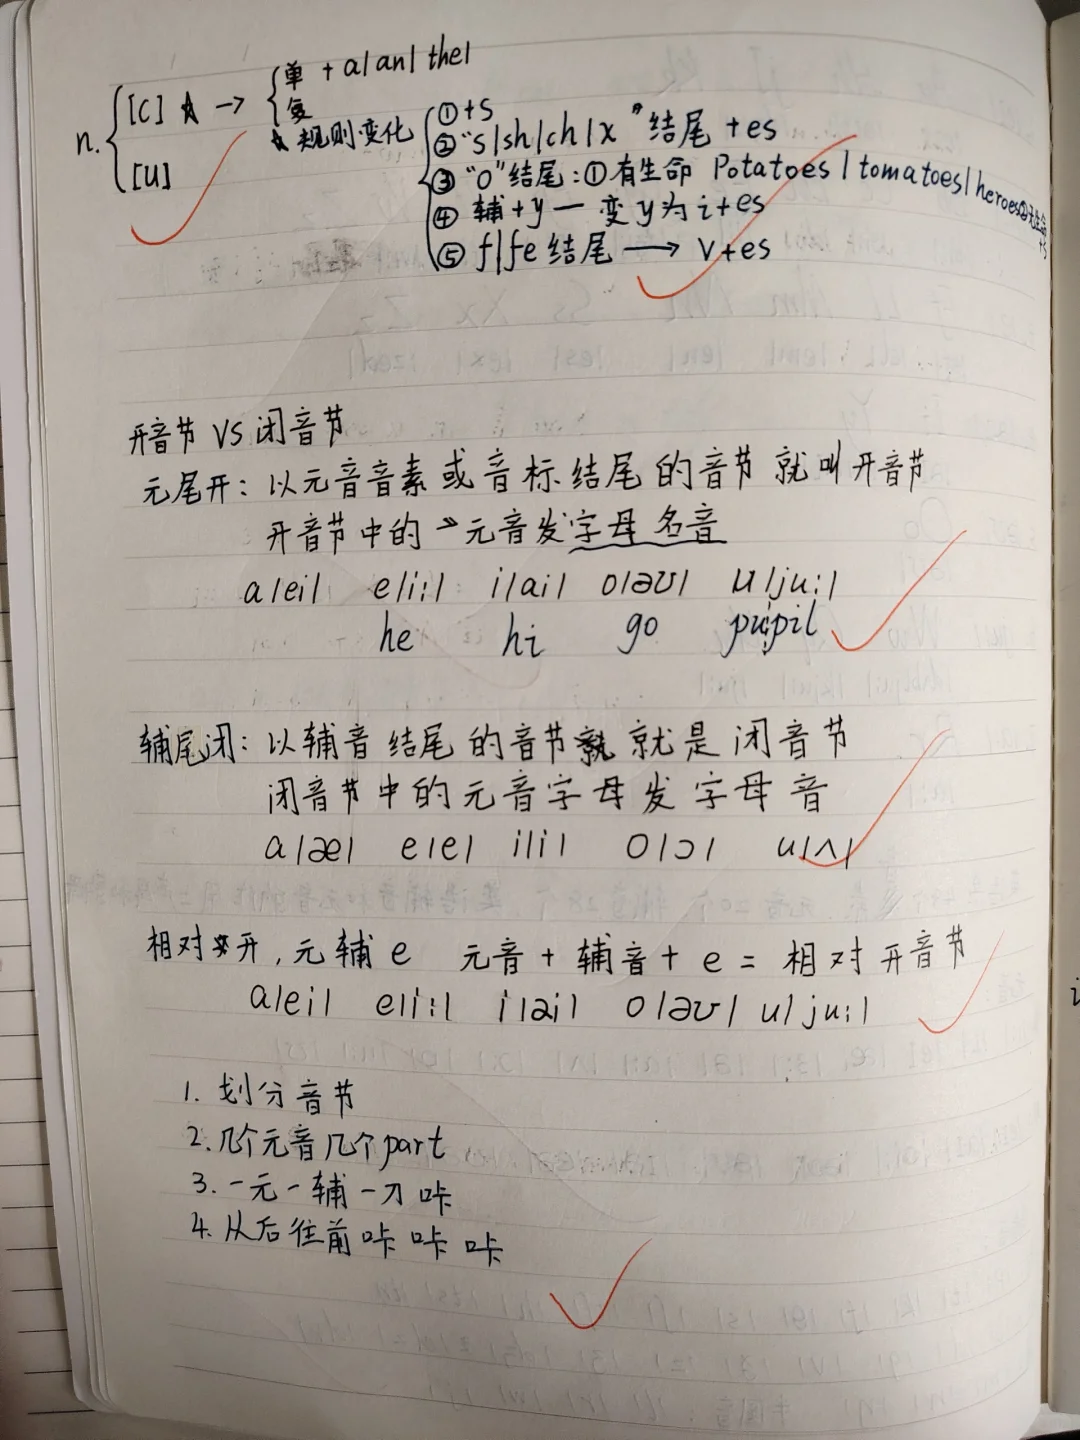 n. [C] ★ → 单 + a/an/the/
复
★ 规则变化 ① +s
② "s/sh/ch/x" 结尾 +es
③ "o" 结尾: ① 有生命 Potatoes / tomatoes / heroes ② 无生命 +s
④ 辅+y — 变y为i+es
[U]
⑤ f/fe 结尾 → v+es
开音节 VS 闭音节
元尾开: 以元音音素或音标结尾的音节就叫开音节
开音节中的 元音发字母名音
a/ei/ e/i:/ i/ai/ o/əʊ/ u/ju:/
he hi go pupil
辅尾闭: 以辅音结尾的音节就是闭音节
闭音节中的元音字母发字母音
a/æ/ e/e/ i/i/ o/ɔ/ u/ʌ/
相对开, 元辅e 元音+辅音+e=相对开音节
a/ei/ e/i:/ i/ai/ o/əʊ/ u/ju:/
1. 划分音节
2. 几个元音几个part
3. 一元一辅一刀咔
4. 从后往前咔咔咔